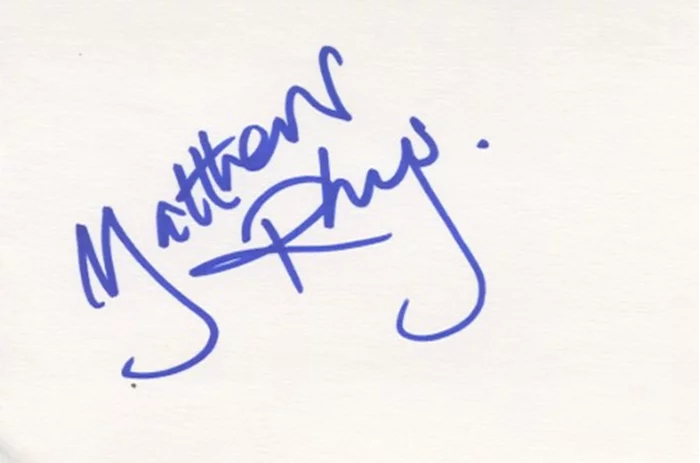 Matthew
Rhys.